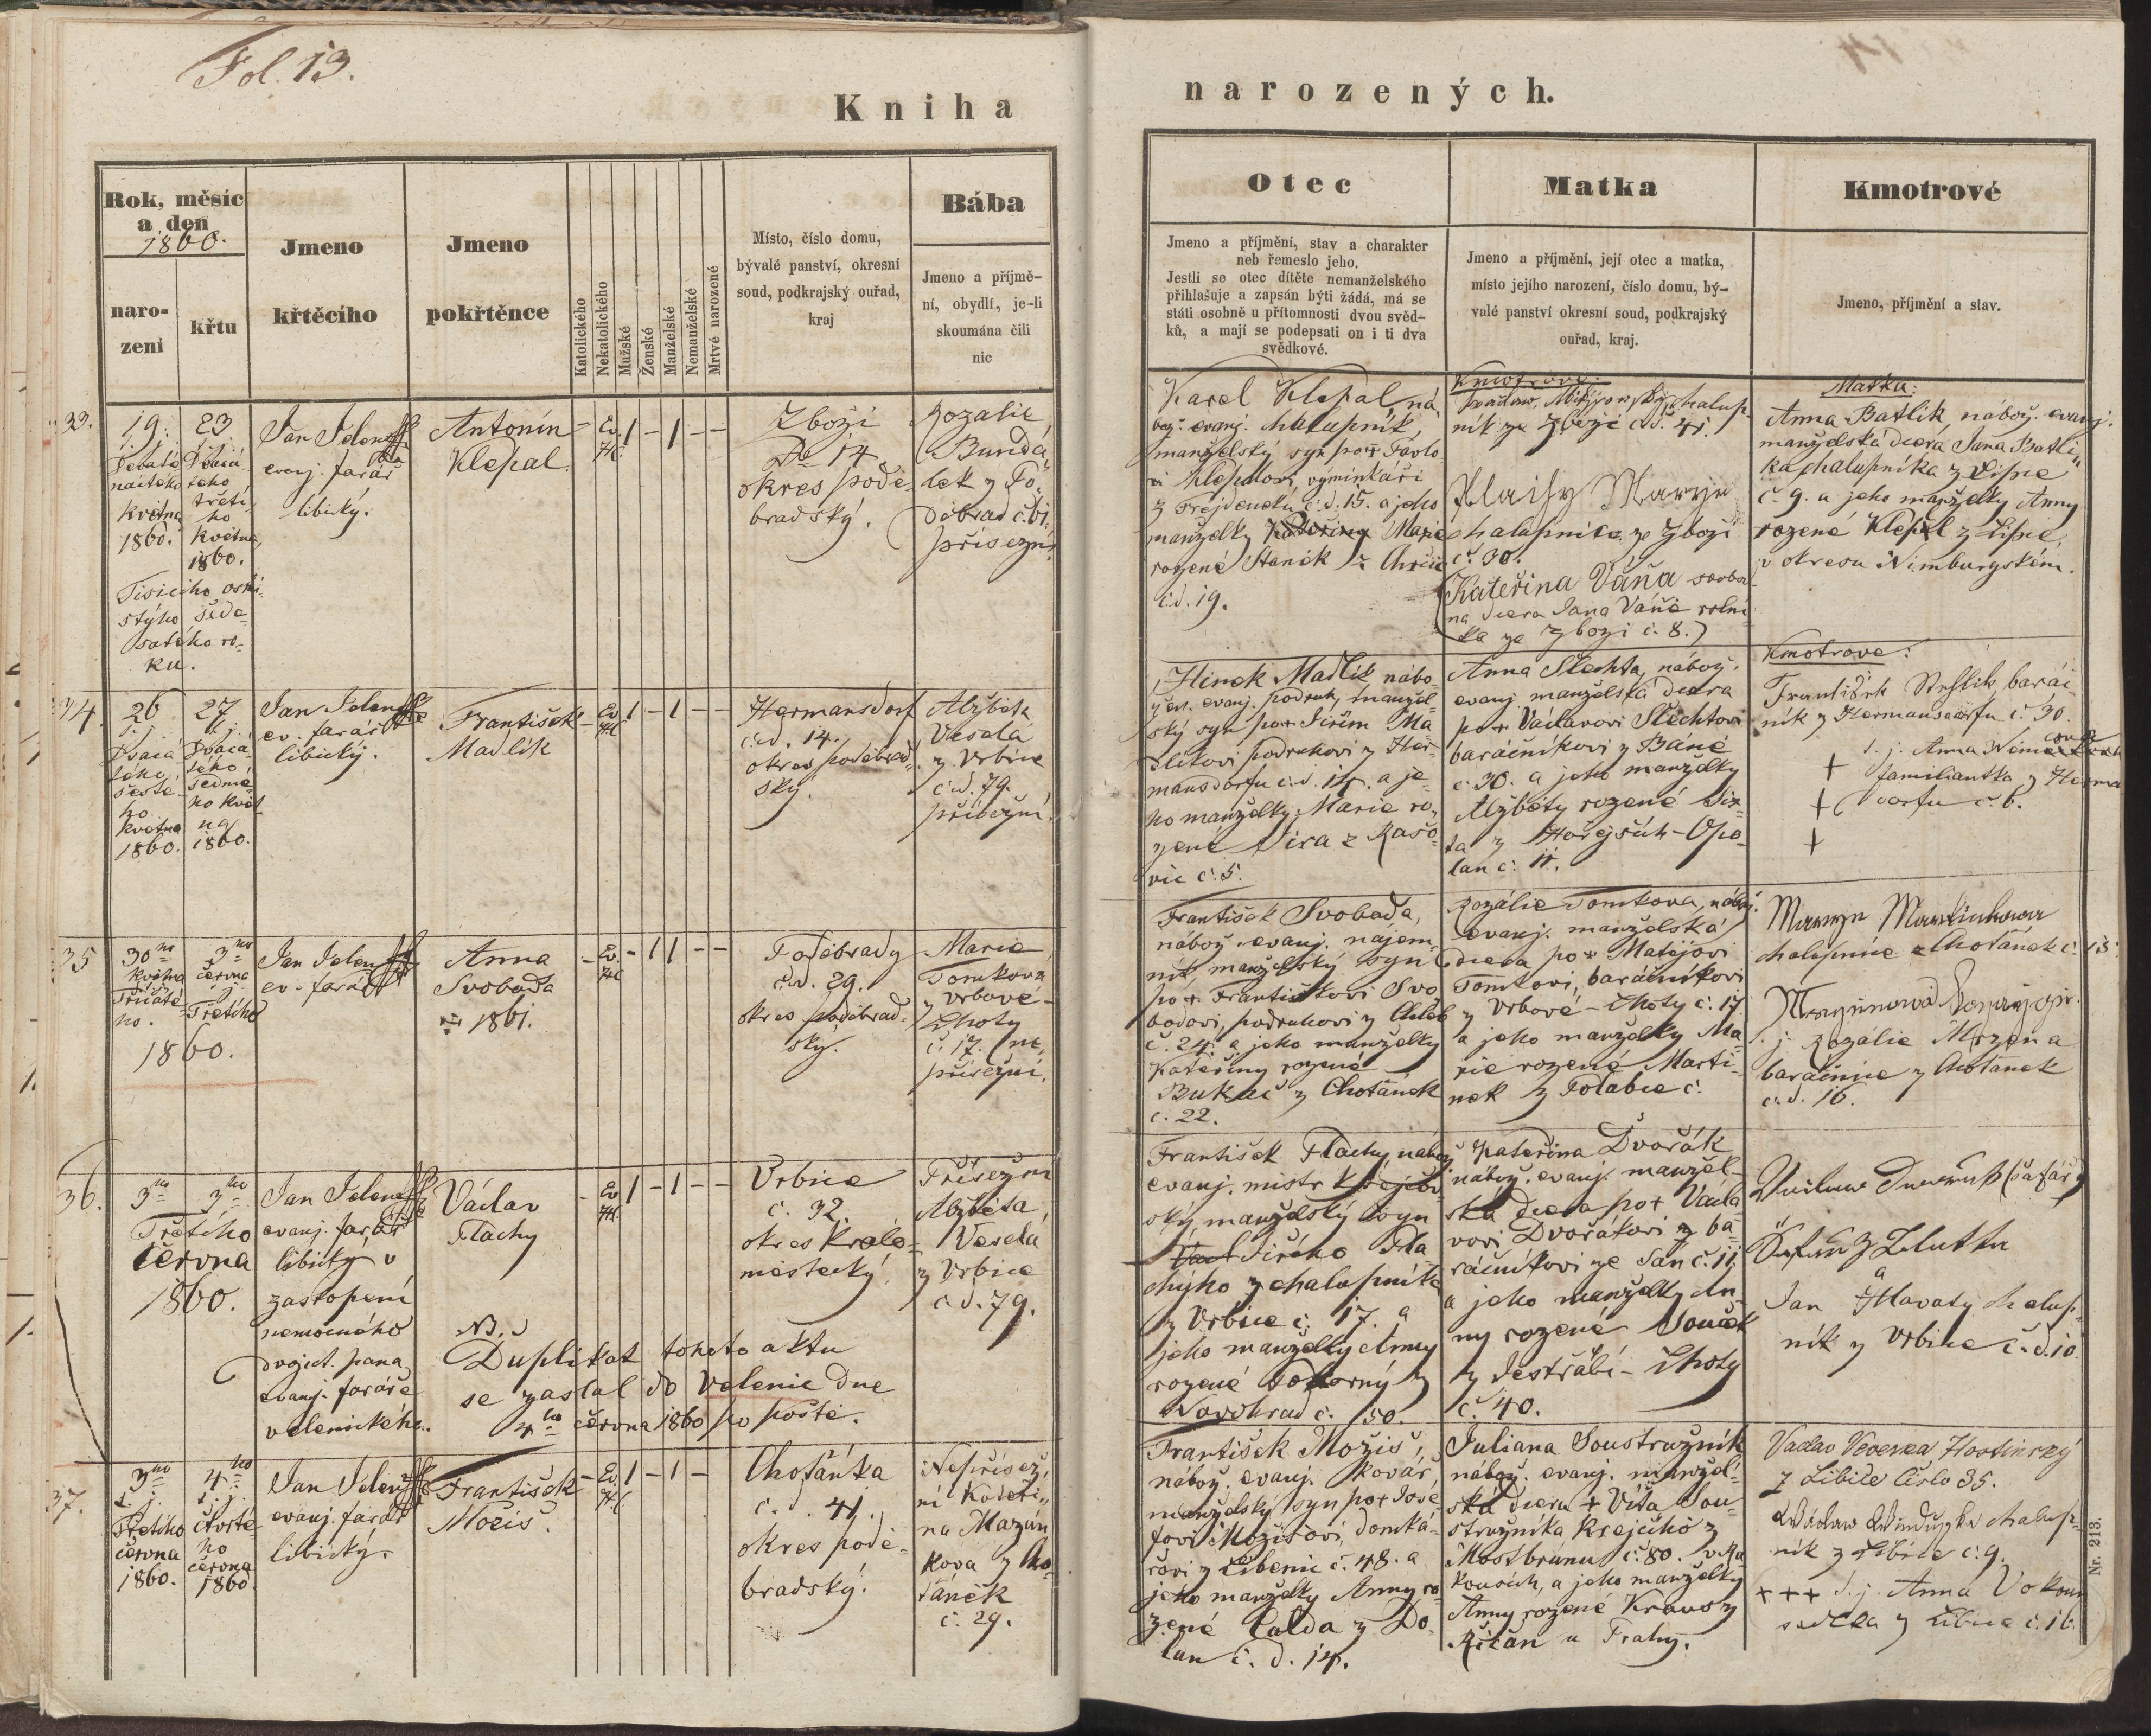 Fol. 13.
Kniha
narozených.
Rok, měsíc
a den
1860.
naro-
zení
křtu
Jmeno
křtěcího
Jmeno
pokřtěnce
Katolického
Nekatolického
Mužské
Ženské
Manželské
Nemanželské
Mrtvé narozené
Místo, číslo domu,
bývalé panství, okresní
soud, podkrajský ouřad,
kraj
Bába
Jmeno a příjmě-
ní, obydlí, je-li
skoumána čili
nic
Otec
Jmeno a příjmění, stav a charakter
neb řemeslo jeho.
Jestli se otec dítěte nemanželského
přihlašuje a zapsán býti žádá, má se
státi osobně u přítomnosti dvou svěd-
ků, a mají se podepsati on i ti dva
svědkové.
Matka
Jmeno a příjmění, její otec a matka,
místo jejího narození, číslo domu, bý-
valé panství okresní soud, podkrajský
ouřad, kraj.
Kmotrové
Jmeno, příjmění a stav.
33.
19.
s. j.
Devaté-
náctého
května
1860.
23
s. j.
Dvacá-
tého
třetí-
ho
května
1860.
Tisícího osmi-
stýho šede-
satého ro-
ku.
Jan Jelen
evanj. farář
libický.
Antonín
Klepal.
- Ev. 1 - 1 - -
H.
Zboží
No 14.
okres podě-
bradský.
Rozalie
Bundá-
lek z Po-
děbrad č. 61.
přísežní.
Karel Klepal, ná-
bož. evanj. chalupník,
manželský syn po + Pavlo-
vi Klepalovi, výminkáři
č. d. 15. a jeho
manželky Kateřiny Marie
rozené Staněk z
č. d. 19.
Kmotrové:
chalup-
ník ze Zboží č. d. 41.
Marye
chalupnice ze Zboží
č. 30.
(Kateřina Váňa svobod-
na dcera Jana Váně rolní-
ka ze Zboží č. 8.)
Matka:
Anna Batlík nábož. evanj.
manželská dcera Jana Batlí-
ka chalupníka z Lipce
č 9. a jeho manželky Anny
rozené Klepal z Lipce,
v okresu Nimburgském.
34.
26
s. j.
Dvacá-
tého
šesté-
ho
května
1860.
27
s. j.
Dvacá-
tého
sedmé-
ho květ-
na
1860.
Jan Jelen
ev. farář
libický.
František
Madlík
- Ev. 1 - 1 - -
H.
Hermansdorf
č. d. 14.
okres poděbrad-
ský.
Alžběta
Veselá
z Vrbice
č. d. 79.
přísežní.
Hinek Madlík nábo-
žen. evanj. podruh, manžel-
ský syn po + Jiřím Ma-
dlíkovi podruhovi z Her-
mansdorfu č. d. 14. a je-
ho manželky Marie ro-
zené Síra z Rašo-
vic č. 5.
Anna Šlechta, nábož.
evanj. manželská dcera
po + Václavovi Šlechtovi
baráčníkovi z Báně
č 30. a jeho manželky
Alžběty rozené
ta z Hořejších-Opo-
lan č. 11.
Kmotrové:
František Steflík, baráč-
ník z Hermansdorfu č. 30.
s. j. Anna
+ familiantka z Herma
+ dorfu č. 6.
+
35
30ho
května
s. j.
Třicáté-
ho.
3ho
června
s. j.
Třetího
1860.
Jan Jelen
ev. farář
Anna
Svoboda
1861.
- Ev. - 1 1 - -
H.
Poděbrady
č. d. 29.
okres poděbrad-
ský.
Marie
Tomkova
z Vrbové-
Lhoty
č. 17. (ne-
přísežní.
František Svoboda,
nábož. evanj. nájem-
ník, manželský syn
po + Františkovi Svo-
bodovi, podruhovi z Chleb
č. 24. a jeho manželky
Kateřiny rozené
Bukač z Chotánek
č. 22.
Rozálie Tomkova, nábož.
evanj. manželská
dcera po + Matějovi
Tomkovi, baráčníkovi
z Vrbové-Lhoty č. 17
a jeho manželky Ma-
rie rozené Marti-
nek z Polabce č.
Marye Martinkowa
chalupnice z Chotánek č. 15.
s. j. Rozálie Mrzena
baráčnice z Chotánek
č. d. 16.
36.
3ho
Třetího
června
1860.
3ho
Jan Jelen
evanj. farář
libický v
zastopení
nemocného
dvojct. pana
evanj. faráře
velenického.
Václav
Flachy
NB.
Duplikat tohoto aktu
se zaslal do Velenic dne
4ho června 1860 po poště.
- Ev 1 - 1 - -
H.
Vrbice
č. 32.
okres Králo-
městecký.
Přísežní
Alžběta
Veselá
z Vrbice
č d. 79.
František Flachy nábož
evanj. mistr krejčov-
ský, manželský syn
Jiřího Fla-
chýho z chalupníka
z Vrbice č. 17. a
jeho manželky Anny
rozené z
Novohrad č. 50.
Kateřina Dvořák
nábož. evanj. manžel-
ská dcera po + Václa-
vovi Dvořákovi z ba-
ráčníkovi ze Sán č. 11
a jeho manželky An-
ny rozené Souček
z Jestřabí-Lhoty
č. 40.
(šafář)
a
Jan Hlavatý chalup-
ník z Vrbice č. d. 10.
37.
3ho
s. j.
Třetího
června
1860.
4ho
s. j.
čtvrté-
ho
června
1860.
Jan Jelen
evanj. farář
libický.
František
Možiš.
- Ev. 1 - 1 -
H.
Chotánka
č. d. 41.
okres podě-
bradský.
Nepřísež-
ní Kateři-
na Mazán-
kova z Cho-
tánék
č. 29.
František Možiš,
nábož. evanj. kovář,
manželský syn po + Jose-
fovi Možišovi, domká-
řovi z Libenic č. 48. a
jeho manželky Anny ro-
zené Calda z Do-
lan č. d. 14.
Juliana Soustružník
nábož. evanj. manžel-
ská dcera + Víta Sou-
stružníka krejčího z
Mostbránu č. 80. v Ra-
kousích, a jeho manželky
Anny rozené Kraus z
Říčan u Prahy.
Vaclav Veverka Hostinský
z Libice Čislo 35.
chalup-
ník z Libice č. 9.
+++ s. j. Anna Vokoun
sedlka z Libice č. 16.
Nr. 213.